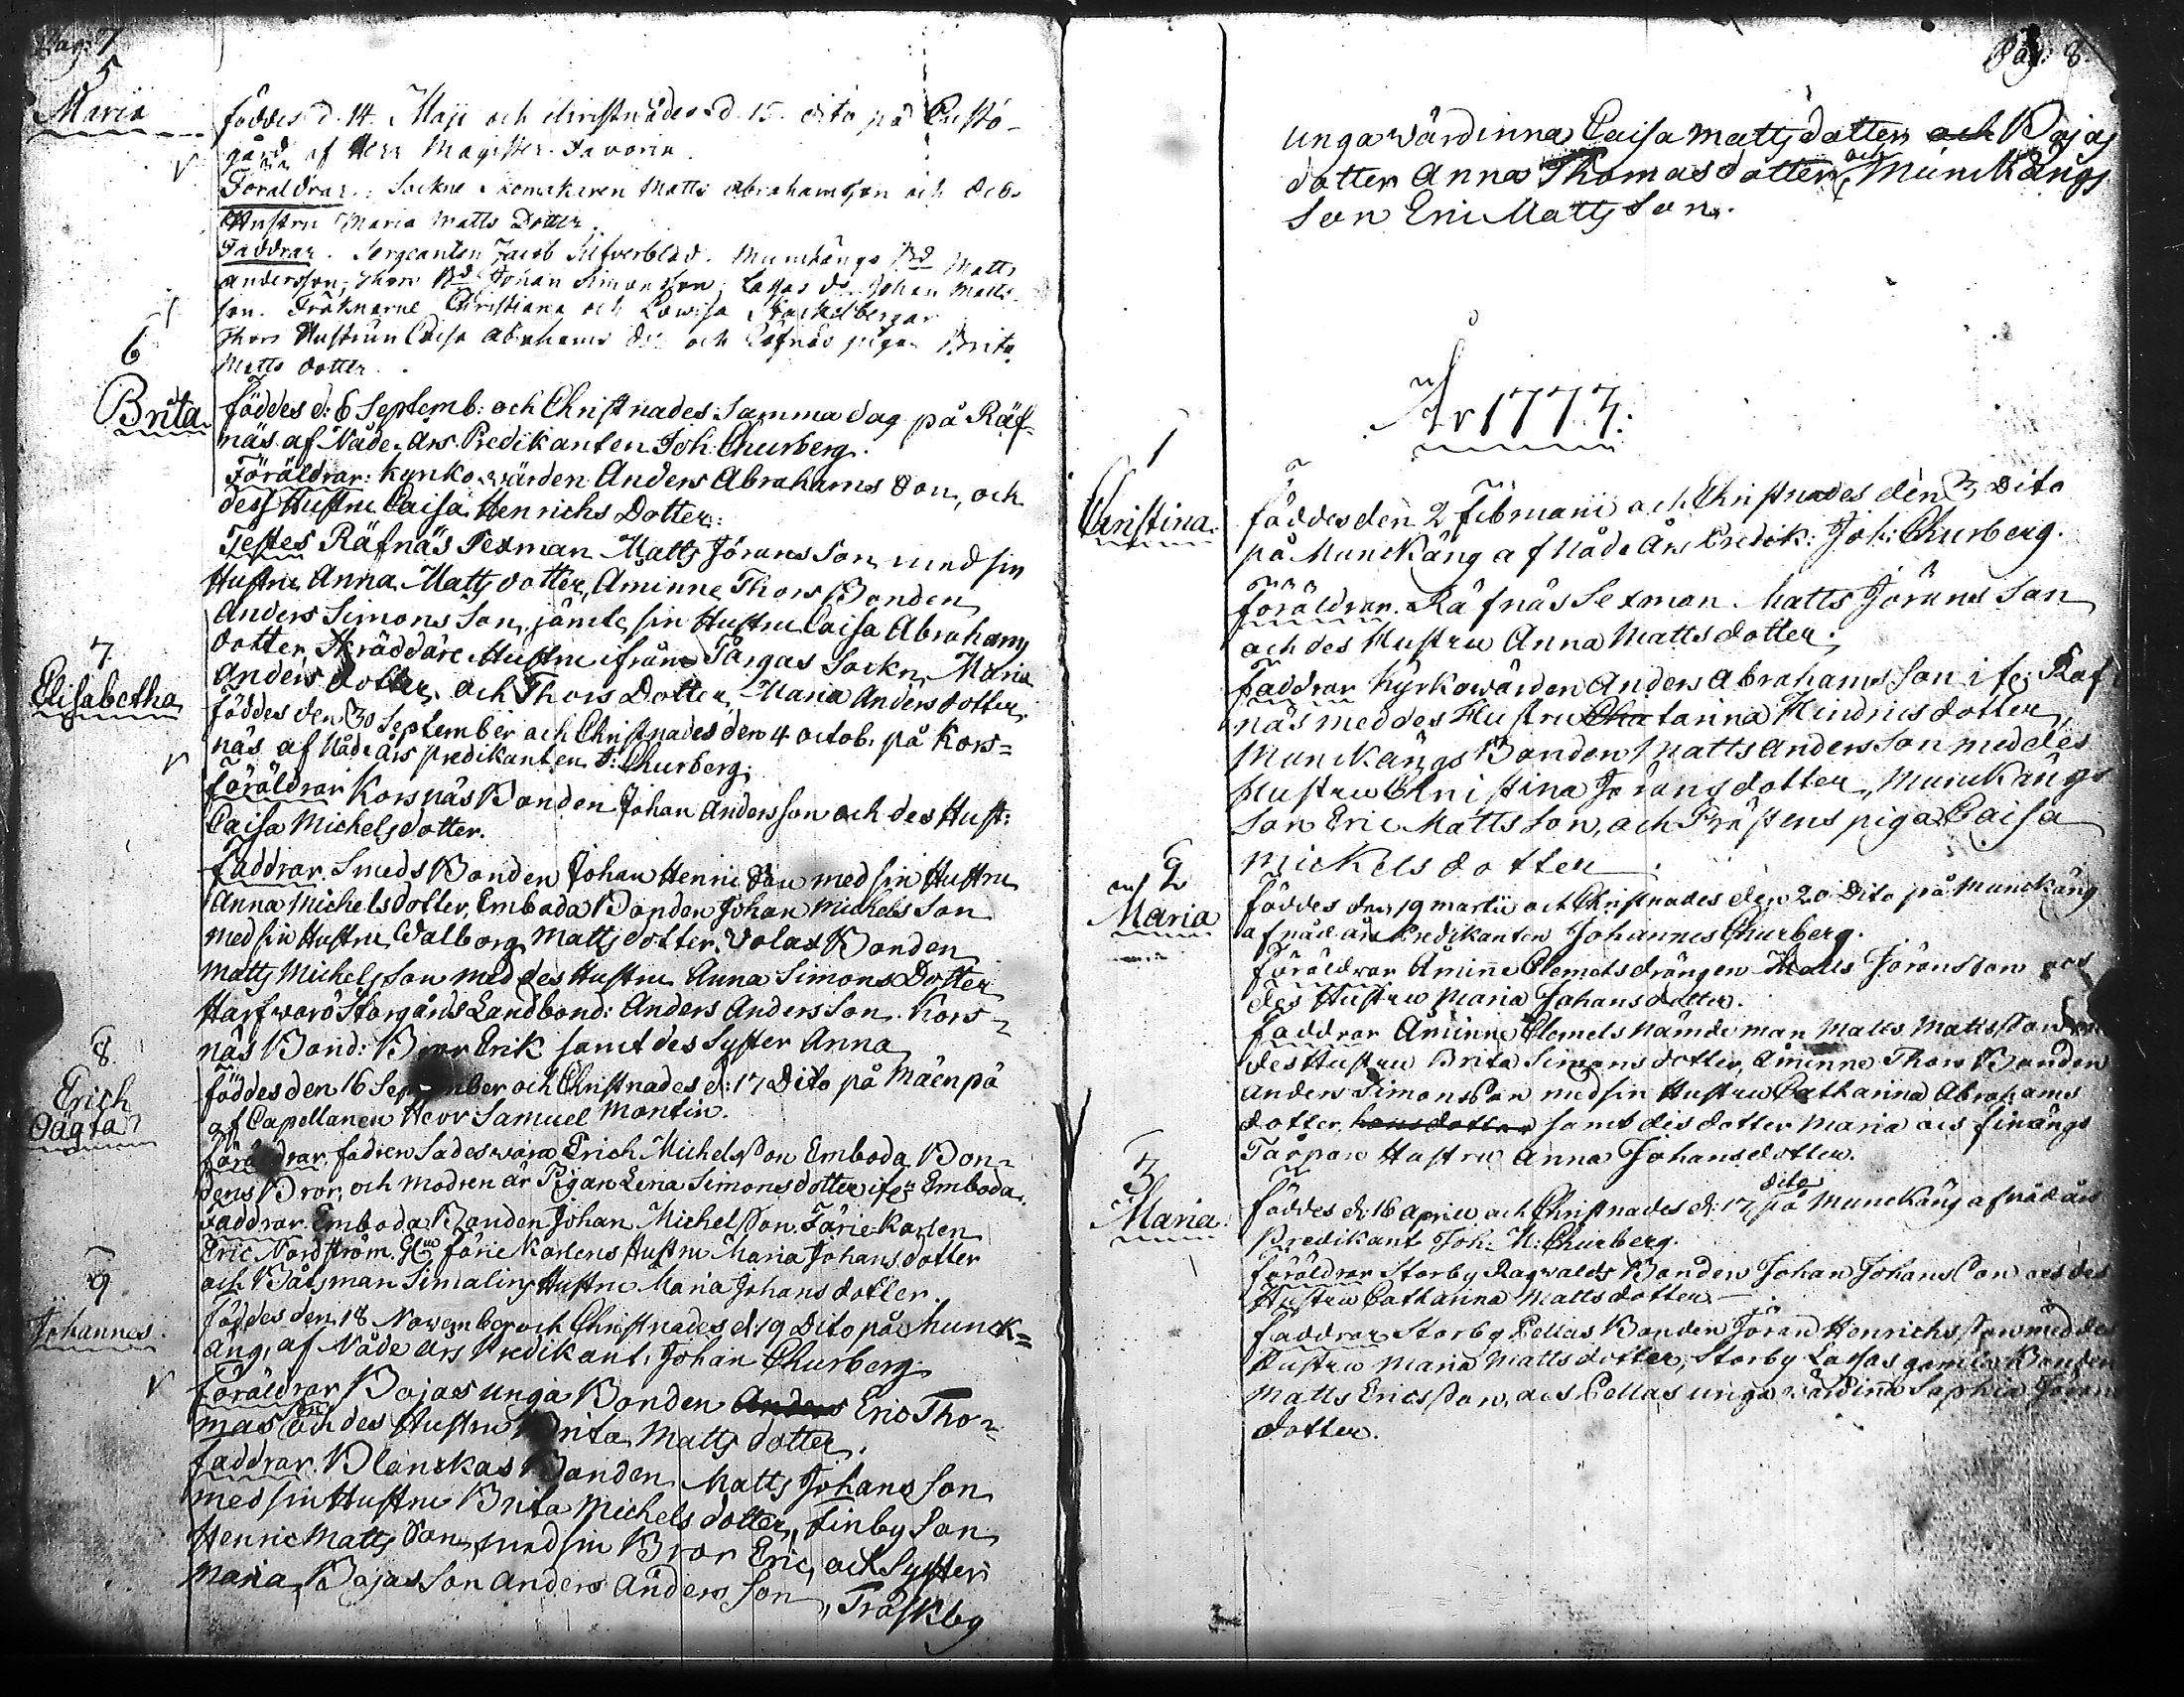 Pag: 7
5
Maria
föddes d. 14. Maji och christnades d. 15. dito på Prästö-
gård af Herr Magister
Föräldrar: Sockne Skomakaren Matts Abrahamsson och des
Hustru Maria Matts Dotter.
Faddrar. Sergeanten Jacob Silfverblad. Munckängs Bd Matts
Andersson, Thors Bd Johan Simonsson, Lassas do Johan Matts
son. Fröknarne Christiana och Lowisa Stackelbergar
Thors Hustrun Caisa Abrahams dr och Räfnäs pigan Brita
Matts dotter.
6
Brita
föddes d: 6 Septemb: och Christnades Samma dag på Räf-
näs af Nåde-års Predikanten Joh: Churberg.
Föräldrar: Kyrko-wärden Anders Abrahams Son, och
dess Hustru Caisa Henrichs Dotter:
Testes Räfnäs Sexman Matts Jörans Son, med sin
Hustru Anna Matts dotter, Åminne Thors Bonden
Anders Simons Son, jämte sin Hustru Caisa Abrahams
dotter, Skräddare Hustru ifrån Pargas Sockn Maria
Anders dotter, och Thors Dotter Maria Anders dotter.
7.
Elisabetha
föddes den 30 September och Christnades den 4 octob. på Kors=
näs af Nåde års predikanten J: Churberg.
föräldrar Korsnäs Bonden Johan Andersson och des Hust:
Caisa Michelsdotter.
faddrar Smeds Bonden Johan Henric Son med sin Hustru
Anna Michelsdotter, Emboda Bonden Johan Michels Son
med sin Hustru Walborg Matts dotter. Volax Bonden
Matts Michelsson med des Hustru Anna Simons Dotter
Harfwarö Storgårds Landbond: Anders Anders Son. Kors-
näs Bond: Bror Erik samt des Syster Anna
8
Erich
Oägta
föddes den 16 September och Christnades d: 17 Dito på Mäenpä
af Capellanen Herr Samuel Montin.
föräldrar. fadren Sades wara Erich Michels Son Emboda Bon-
dens Bror, och modren är Pigan Lena Simons dotter ifr: Emboda.
faddrar Emboda Bonden Johan Michels Son. Färie Karlen
Eric Nordström. färie Karlens Hustru Maria Johansdotter
och Båtsman Simalins Hustru Maria Johans dotter.
9
Johannes.
föddes den 18 November och Christnades d: 19 Dito på Munck=
äng, af Nåde års Predikant, Johan Churberg
föräldrar Bojas unga Bonden Anders Eric Tho-
mas Son och des Hustru Brita Matts dotter.
faddrar. Blanskas Bonden Matts Johans Son
med sin Hustru Brita Michels dotter, Finby Son
Henric Matts Son, med sin Bror Eric, och Syster
Maria, Bojas Son Anders Anders Son, Träskby
Pag: 8.
unga Wärdinna Caisa Matts dotter och Bojas
dotter Anna Thomas dotter, och Munckängs
Son Eric Matts Son.
År 1777:
1
Christina.
föddes den 2 Februarii och Christnades den 3 Dito
på Munckäng af Nåde Års Predik: Joh: Churberg.
föräldrar. Räfnäs Sexman Matts Jörans Son
och des Hustru Anna Matts dotter.
Faddrar Kyrkowärden Anders Abrahams Son ifr: Räf
näs med des Hustru Chatarina Hindricsdotter,
Munckängs Bonden Matts Anders Son med des
Hustru Christina Jörans dotter, Munckängs
Son Eric Matts Son, och Prästens piga Caisa
Mickels dotter
2
Maria
föddes den 19 martii och Christnades den 20 Dito på Munckäng
af nåd års Predikanten Johannes Churberg.
föräldrar Åminne Clemets drängen Matts Jöransson och
des Hustru Maria Johans dotter.
faddrar Åminne Clemets Nämde man Matts Matts Son
des Hustru Brita Simons dotter, Åminne Thors Bonden
Anders Simons Son med sin Hustru Catharina Abrahams
dotter, hans dotter samt des dotter Maria och finängs
Torpare Hustru Anna Johans dotter.
3
Maria.
föddes d: 16 Aprill och Christnades d: 17 dito på Munckäng af nåd års
Predikant Joh: N: Churberg.
föräldrar Storby Ragwalds Bonden Johan Johans Son och des
Hustru Catharina Matts dotter
faddrar Storby Pellas Bonden Jöran Henrichs Son med des
Hustru Maria Matts dotter, Storby Lassas gamla Bonden
Matts Erics Son, och Pellas unga wärdina Sophia Jörans
dotter.